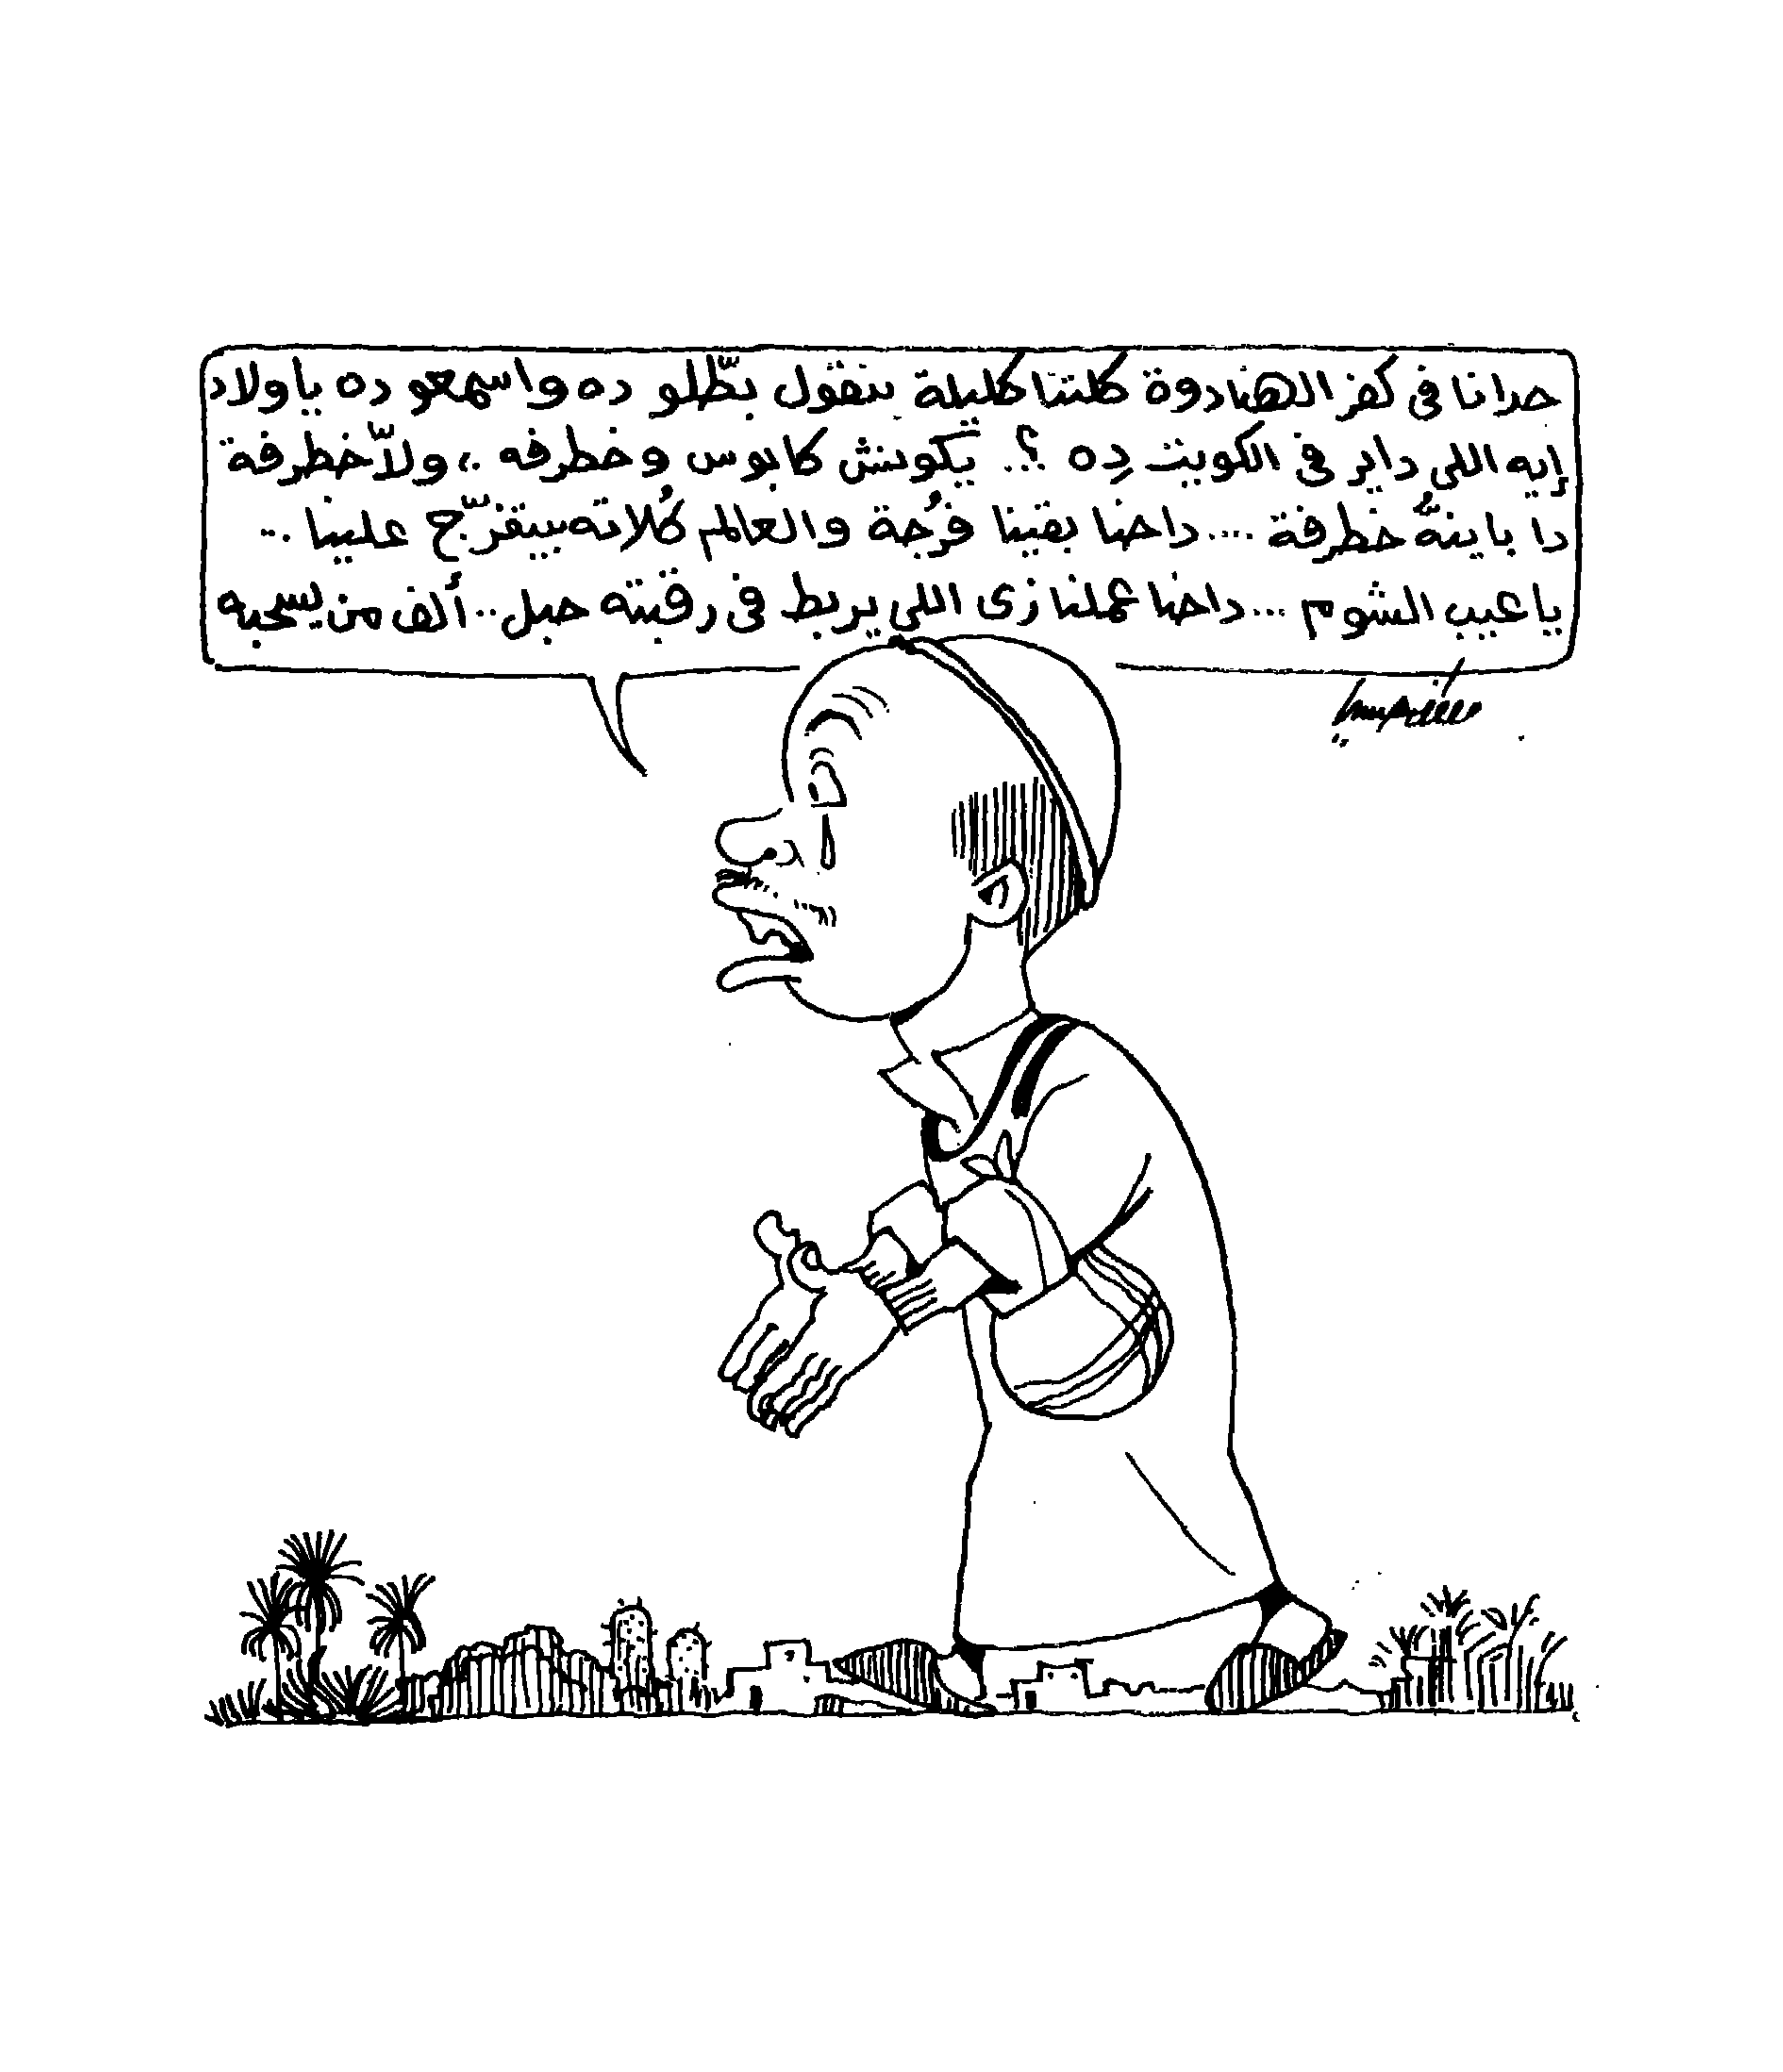 حدانا فى كفر الهنادوة كلتنا كليلة بنقول بطّلو ده واسمعو ده ياولاد
إيه اللى داير فى الكويت دِه ؟.. يكونش كابوس وخطرفه .، ولاّ خطرفة
دا باينهّ خطرفة .... داحنا بقينا فُرجة والعالم كُلاته بيتفرّج علينا ...
ياعيب الشوم ... داحنا عملنا زى اللى يربط فى رقبته حبل .. ألف من يسحبه